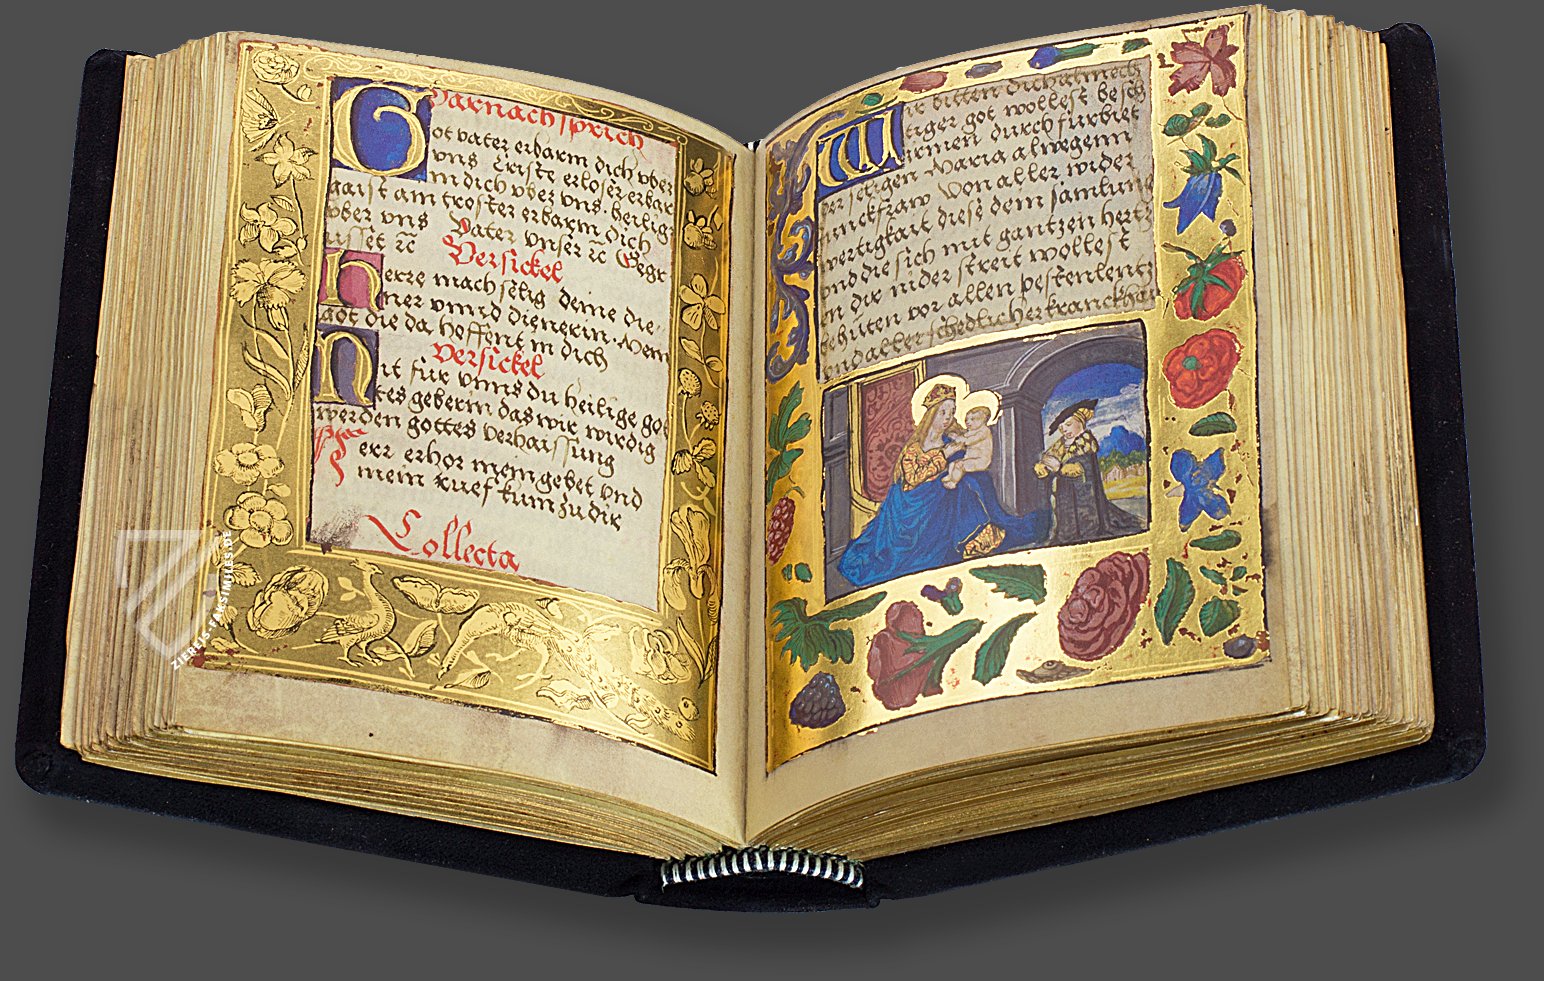 Darnach sprich
Got vater erbarm dich vber
vns Criste erloser erbar
m dich vber vns. heilig
gaist am troster erbarm dich
vber vns Vater vnser ꝛc Gegr
usset ꝛc
Versickel
herre mach selig deine die-
ner vnnd dienerin. Mein
got die da hoffent in dich
Versickel
Nit für vnns du heilige go
ttes geberin das wir wirdig
werden gottes verhaissung
Herr erhor mein gebet vnd
mein ruef kum zu dir
Collecta
Wir bitten dich
tiger got wollest besch
irmen durch fürbiet
der seligen Maria alwegenn
iunckfraw Von aller wider
wertigkait diese dein samlung
vnd die sich mit gantzen hertz
en dir nider streit wollest
behüten vor allen pestenlentz
vnd aller schedlicher kranckhai
ZIEREIS-FAKSIMILES.DE